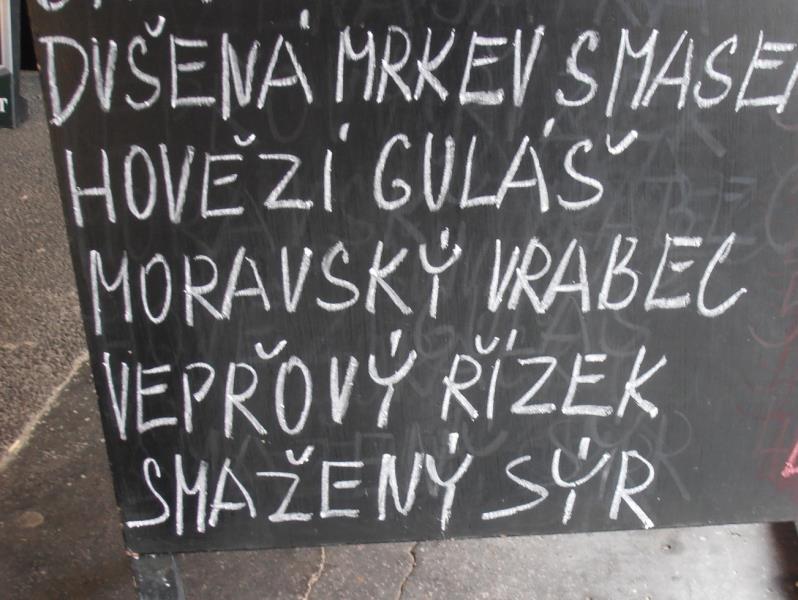 DUŠENÁ MRKEV S MASEM
HOVĚZÍ GULÁŠ
MORAVSKÝ VRABEC
VEPŘOVÝ ŘÍZEK
SMAŽENÝ SÝR